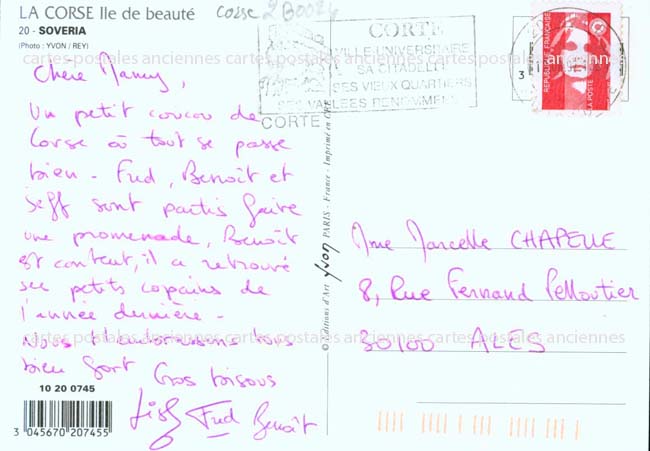 LA CORSE Ile de beauté
20 - SOVERIA
(Photo : YVON / REY)
Corse 2B0024
CORTE
VILLE UNIVERSITAIRE
SA CITADELLE
SES VIEUX QUARTIERS
SES VALLEES RENOMMEES
CORTE
REPUBLIQUE FRANÇAISE
LA POSTE
cartes postales anciennes cartes postales anciennes cartes postales anciennes
Chère Mamy,
Un petit coucou de
Corse où tout se passe
bien - Fred, Benoît et
Jeff sont partis faire
une promenade, Benoît
est content, il a retrouvé
ses petits copains de
l'année dernière -
Nous t'embrassons tous
bien fort Gros bisous
Fred Benoît
© Editions d'Art yvon PARIS - France - Imprimé en CEE
Mme Marcelle CHAPELLE
8, Rue Fernand Pelloutier
30100 ALES
cartes postales anciennes cartes postales anciennes cartes postales anciennes
10 20 0745
3 045670 207455